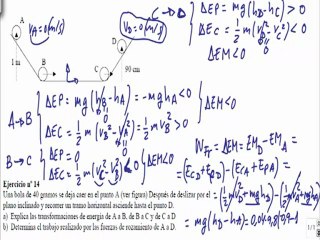 A
V_A = 0 (m/s)
V_D = 0 (m/s)
D
1 m
B
C
90 cm
C → D { ΔEP = mg(h_D - h_C) > 0
ΔEC = 1/2 m(v_D² - v_C²) < 0
ΔEM < 0
A → B { ΔEP = mg(h_B - h_A) = -mgh_A < 0
ΔEC = 1/2 m(v_B² - v_A²) = 1/2 m v_B² > 0
} ΔEM < 0
B → C { ΔEP = 0
ΔEC < 0
} ΔEM < 0
= ΔEM = EM_D - EM_A =
= (EC_D + EP_D) - (EC_A + EP_A) =
= mg(h_D - h_A) =
Ejercicio nº 14
Una bola de 40 gramos se deja caer en el punto A (ver figura) Después de deslizar por el
plano inclinado y recorrer un tramo horizontal asciende hasta el punto D.
a) Explica las transformaciones de energía de A a B, de B a C y de C a D
b) Determina el trabajo realizado por las fuerzas de rozamiento de A a D.
1/1